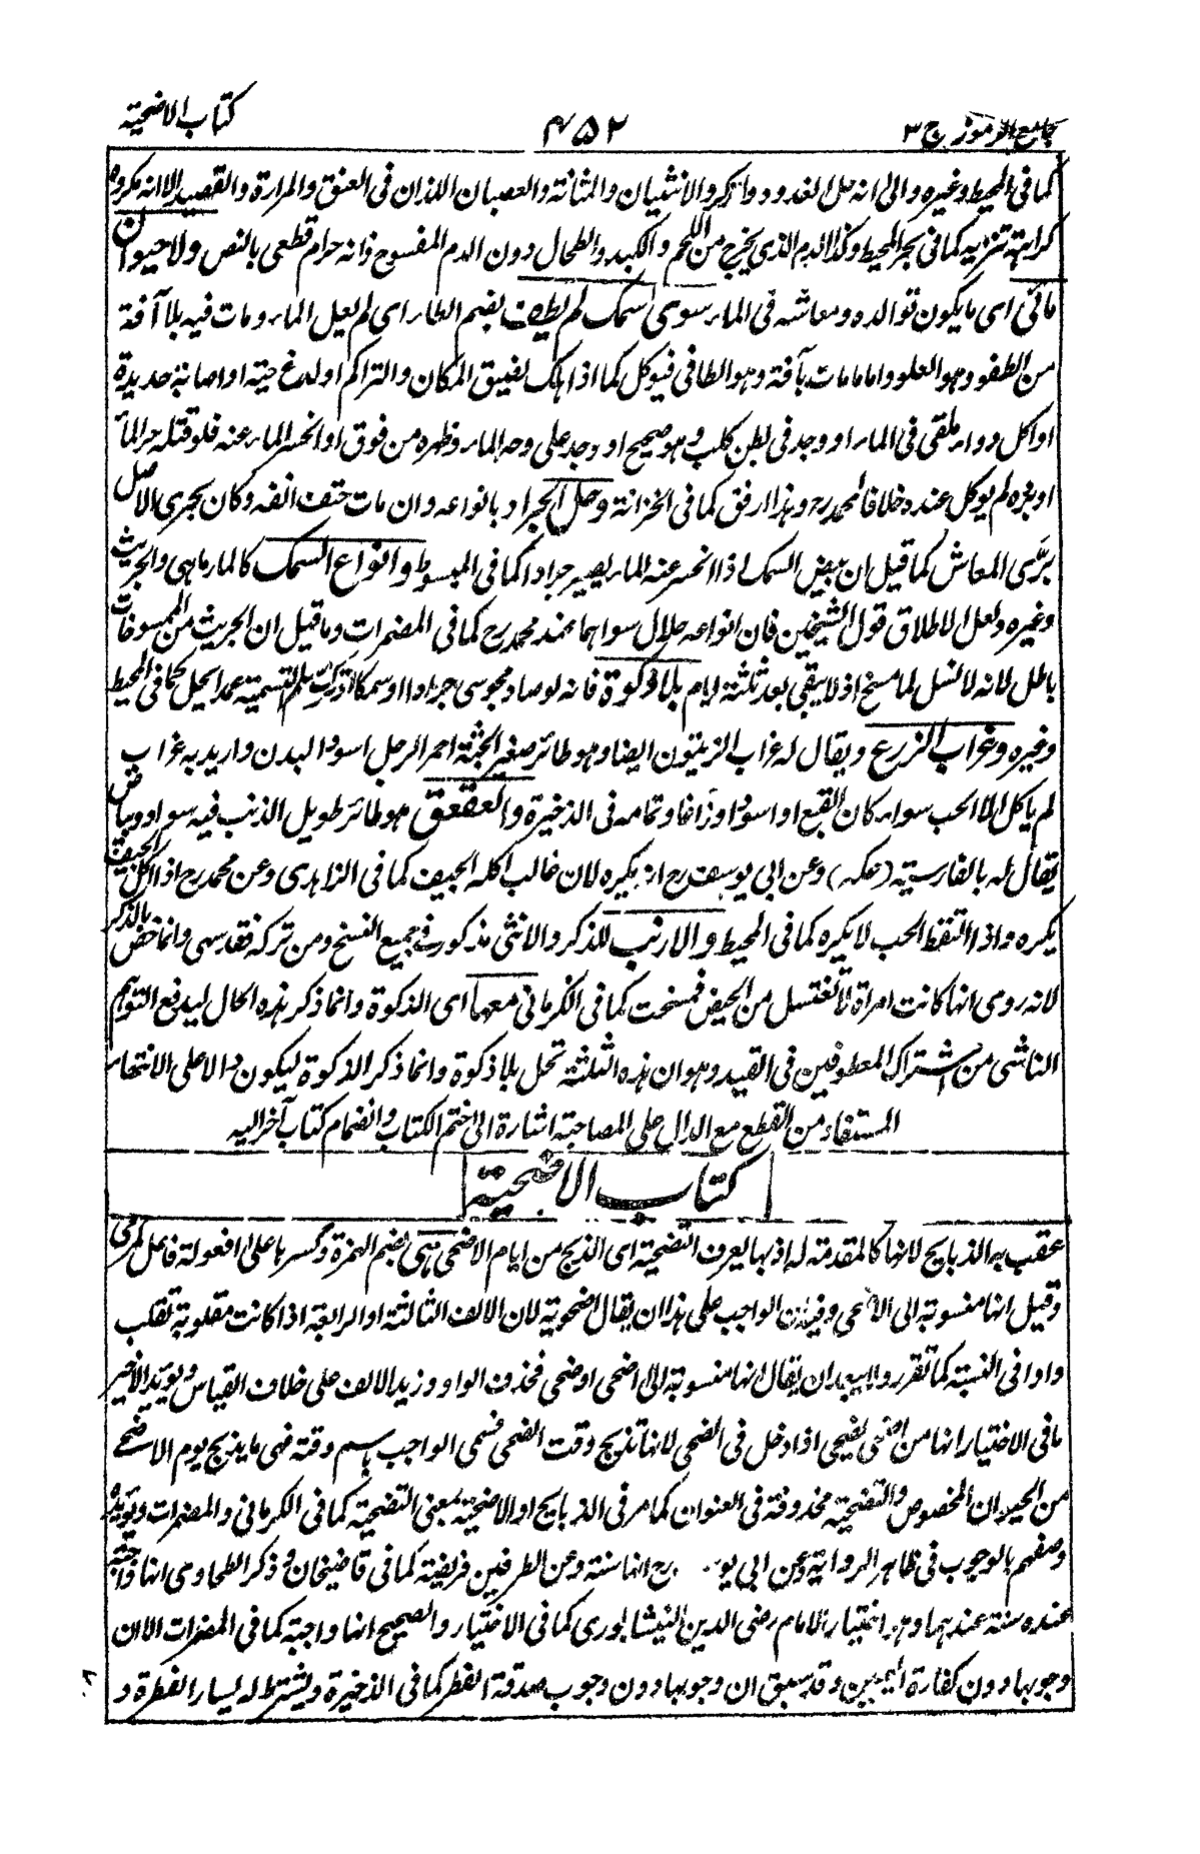 جامع الرموز ج ٣
٤٥٢
كتاب الاضحية
كما فى المحيط وغيره والى انه حل الغدود والذكر والانثيان والمثانة والعصبان اللذان فى العنق والمرارة والقصيد الا انه مكروه
كراهة تنزيه كما فى بحر المحيط وكذا الدم الذى يخرج من اللحم والكبد والطحال دون الدم المفسوح فانه حرام قطعى بالنص ولا حيوان
مائى اى ما يكون توالده ومعاشه فى الماء سوى سمك لم يطف بضم الطاء اى لم يعل الماء ومات فيه بلا آفة
من الطفو وهو العلو واما ما مات بآفة وهو الطافى فيوكل كما اذا هلك لضيق المكان والتراكم او لدغ حية او اصابة حديدة
او اكل دواء ملقى فى الماء او وجد فى بطن كلب وهو صحيح او وجد على وجه الماء وظهره من فوق او انحسر الماء عنه فلو قتله حر الماء
او برده لم يوكل عنده خلافا لمحمد رح وهذا ارفق كما فى الخزانة وحل الجراد بانواعه وان مات حتف انفه وكان بحرى الاصل
برّى المعاش كما قيل ان بيض السمك اذا انحسر عنه الماء يصير جرادا كما فى المبسوط وانواع السمك كالمارماهى والجريث
وغيره ولعل الاطلاق قول الشيخين فان انواعه حلال سواهما عند محمد رح كما فى المضمرات وما قيل ان الجريث من الممسوخات
باطل لانه لا نسل لما مسخ اذ لا يبقى بعد ثلثة ايام بلا ذكوة فانه لو صاد مجوسى جرادا او سمكا او ترك مسلم التسمية عمدا يحل كما فى المحيط
وغيره وغراب الزرع ويقال له غراب الزيتون ايضا وهو طائر صغير الجثة احمر الرجل اسود البدن واريد به غراب
لم ياكل الا الحب سواء كان ابقع او اسود او زاغا وتمامه فى الذخيرة والعقعق هو طائر طويل الذنب فيه سواد وبياض
يقال له بالفارسية (عكه) وعن ابى يوسف رح انه يكره لان غالب اكله الجيف كما فى الزاهدى وعن محمد رح اذا اكل الجيف
يكره واذا التقط الحب لا يكره كما فى المحيط والارنب للذكر والانثى مذكور فى جميع النسخ ومن تركه فقد سهى وانما خص بالذكر
لانه روى انها كانت امراة لا تغتسل من الحيض فمسخت كما فى الكرمانى معها اى الذكوة وانما ذكر هذه الحال ليدفع التوهم
الناشى من اشتراك المعطوفين فى القيد وهو ان هذه الثلثة تحل بلا ذكوة وانما ذكر الذكوة ليكون دالا على الانتهاء
المستفاد من القطع مع الدال على المصاحبة اشارة الى ختم الكتاب وانضمام كتاب آخر اليه
كتاب الاضحية
عقب به الذبايح لانها كالمقدمة له اذ بها يعرف التضحية اى الذبح من ايام الاضحى هى بضم الهمزة وكسرها على افعولة فاعل كرمى
وقيل انها منسوبة الى الاضحى وفيه ان الواجب على هذا ان يقال اضحوية لان الالف الثالثة او الرابعة اذا كانت مقلوبة تقلب
واوا فى النسبة كما تقرر ولا يبعد ان يقال انها منسوبة الى اضحى او ضحى فحذف الواو وزيد الالف على خلاف القياس ويؤيد الاخير
ما فى الاختيار انها من اضحى يضحى اذا دخل فى الضحى لانها تذبح وقت الضحى فسمى الواجب باسم وقته فهى ما يذبح يوم الاضحى
من الحيوان المخصوص والتضحية محذوفة فى العنوان كما مر فى الذبايح او الاضحية بمعنى التضحية كما فى الكرمانى والمضمرات ويؤيده
وصفهم بالوجوب فى ظاهر الرواية وعن ابى يو رح انها سنة وعن الطرفين فريضة كما فى قاضيخان وذكر الطحاوى انها واجبة
عنده سنة عندهما وهو اختيار الامام رضى الدين النيشابورى كما فى الاختيار والصحيح انها واجبة كما فى المضمرات الا ان
وجوبها دون كفارة اليمين وقد سبق ان وجوبها دون وجوب صدقة الفطر كما فى الذخيرة ويشترط له يسار الفطرة و